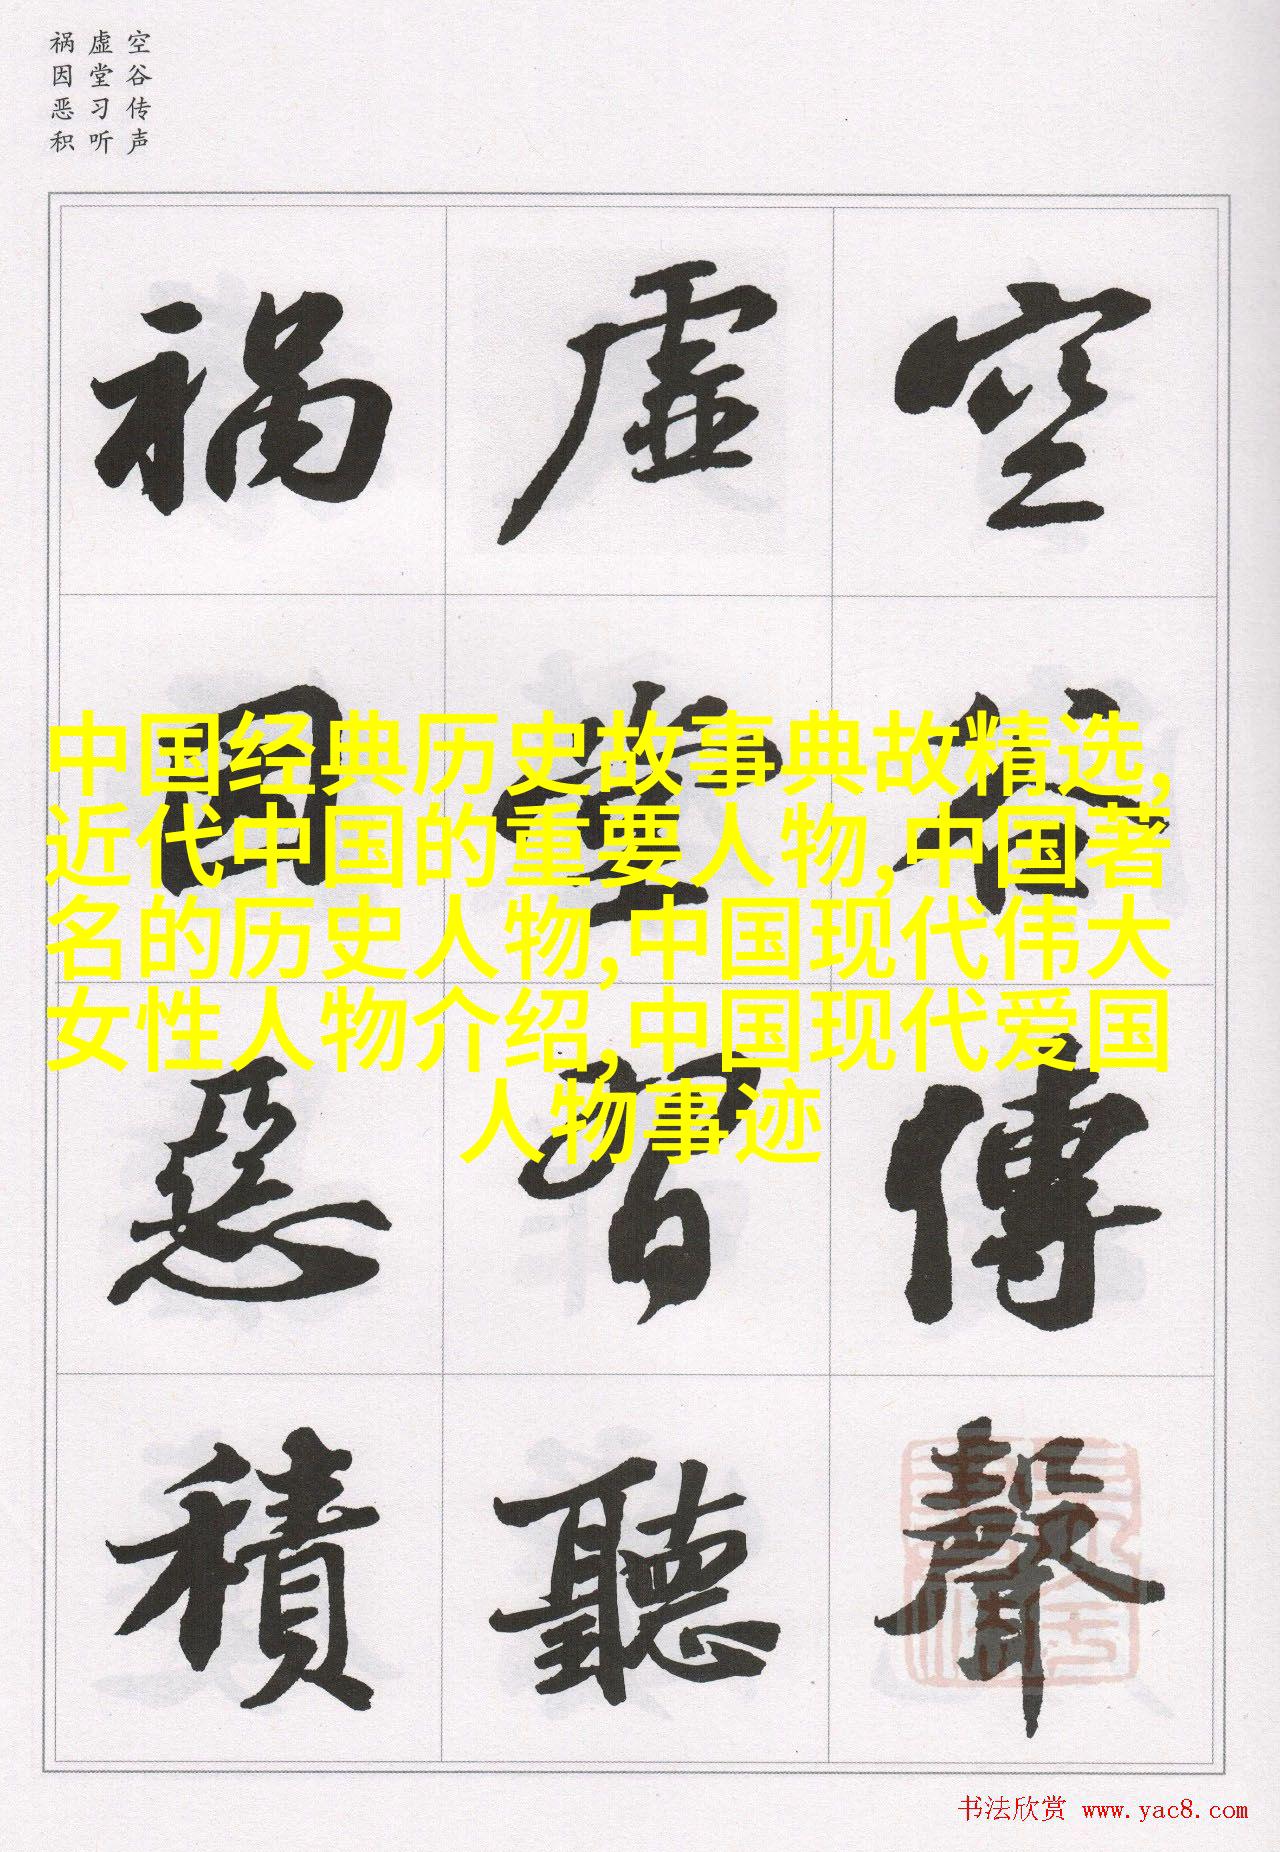 空谷传声
虚堂习听
祸因恶积
空谷傳聲
虚堂習聽
禍因惡積
中国经典历史故事典故精选,
近代中国的重要人物,中国著
名的历史人物,中国现代伟大
女性人物介绍,中国现代爱国
人物事迹
书法欣赏 www.yac8.com